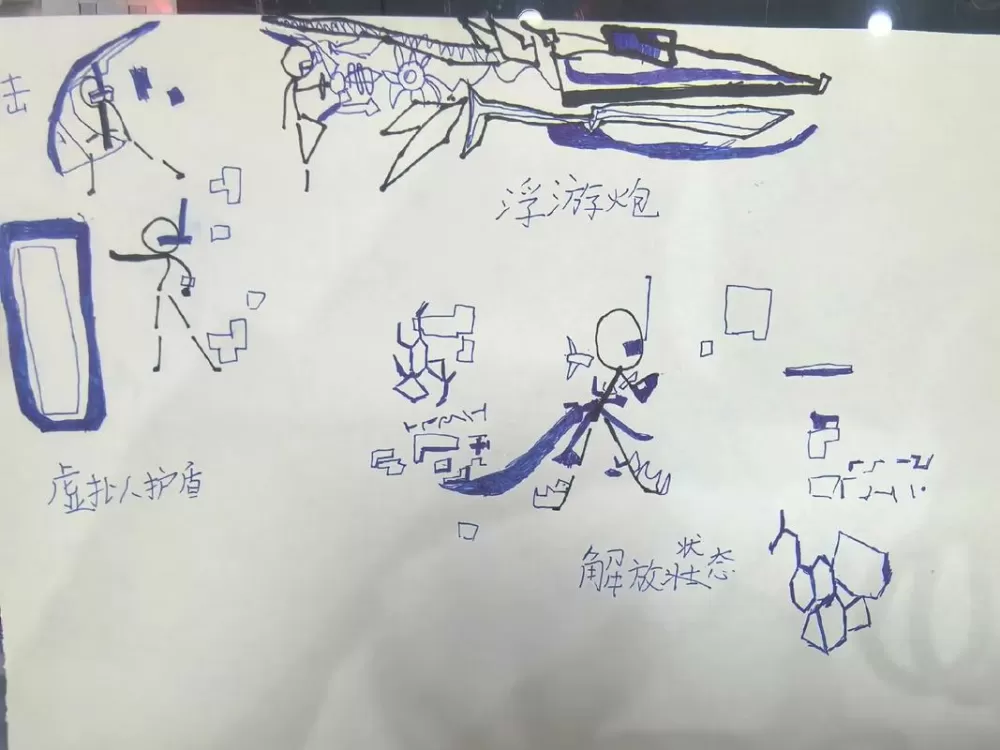 击
浮游炮
虚拟人护盾
解放状态